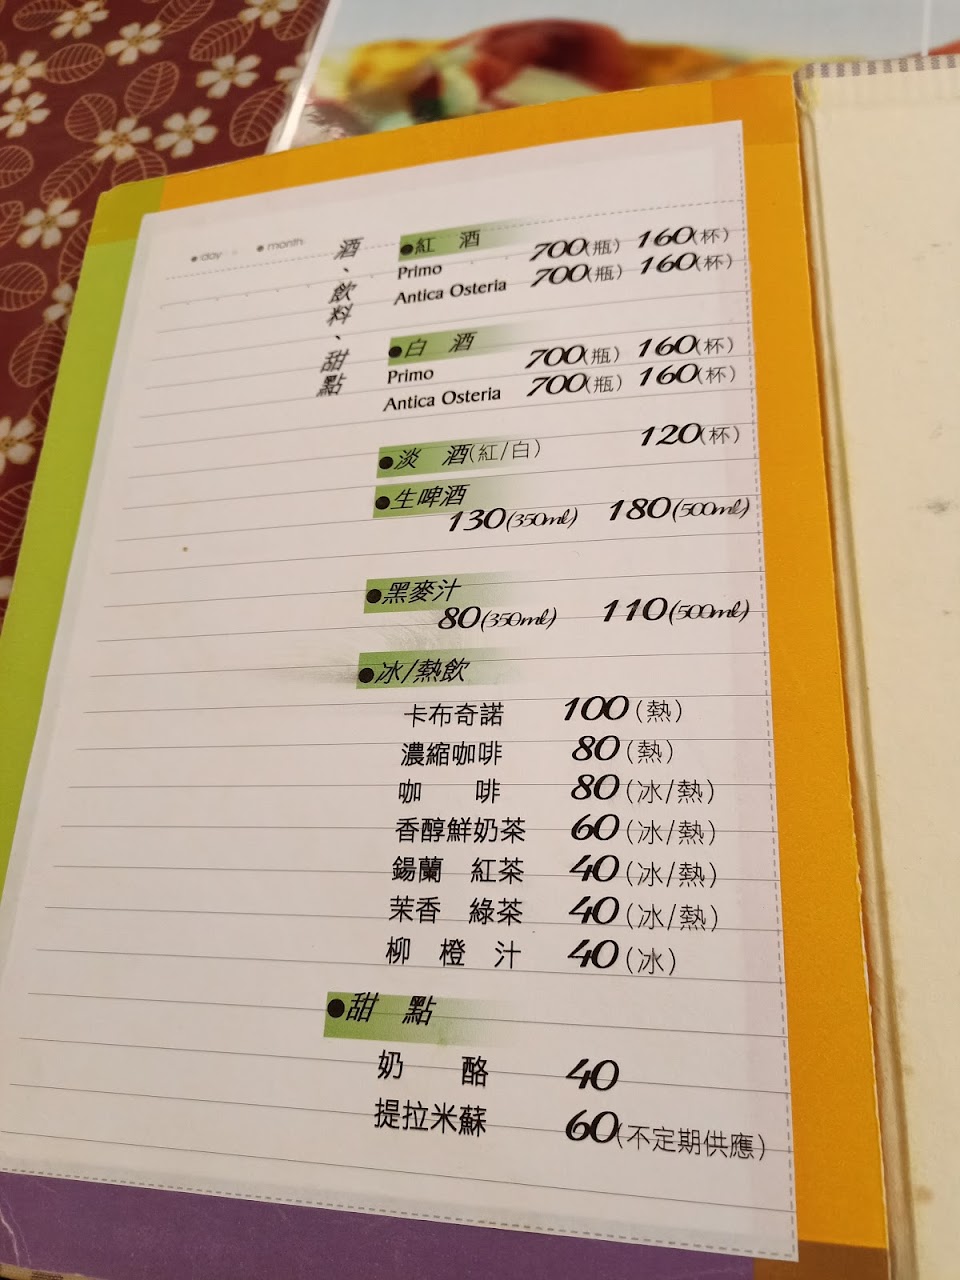 ●day ●month
酒、飲料、甜點
●紅 酒
Primo 700(瓶) 160(杯)
Antica Osteria 700(瓶) 160(杯)
●白 酒
Primo 700(瓶) 160(杯)
Antica Osteria 700(瓶) 160(杯)
●淡 酒(紅/白) 120(杯)
●生啤酒
130(350ml) 180(500ml)
●黑麥汁
80(350ml) 110(500ml)
●冰/熱飲
卡布奇諾 100(熱)
濃縮咖啡 80(熱)
咖 啡 80(冰/熱)
香醇鮮奶茶 60(冰/熱)
鍚蘭 紅茶 40(冰/熱)
茉香 綠茶 40(冰/熱)
柳 橙 汁 40(冰)
●甜 點
奶 酪 40
提拉米蘇 60(不定期供應)